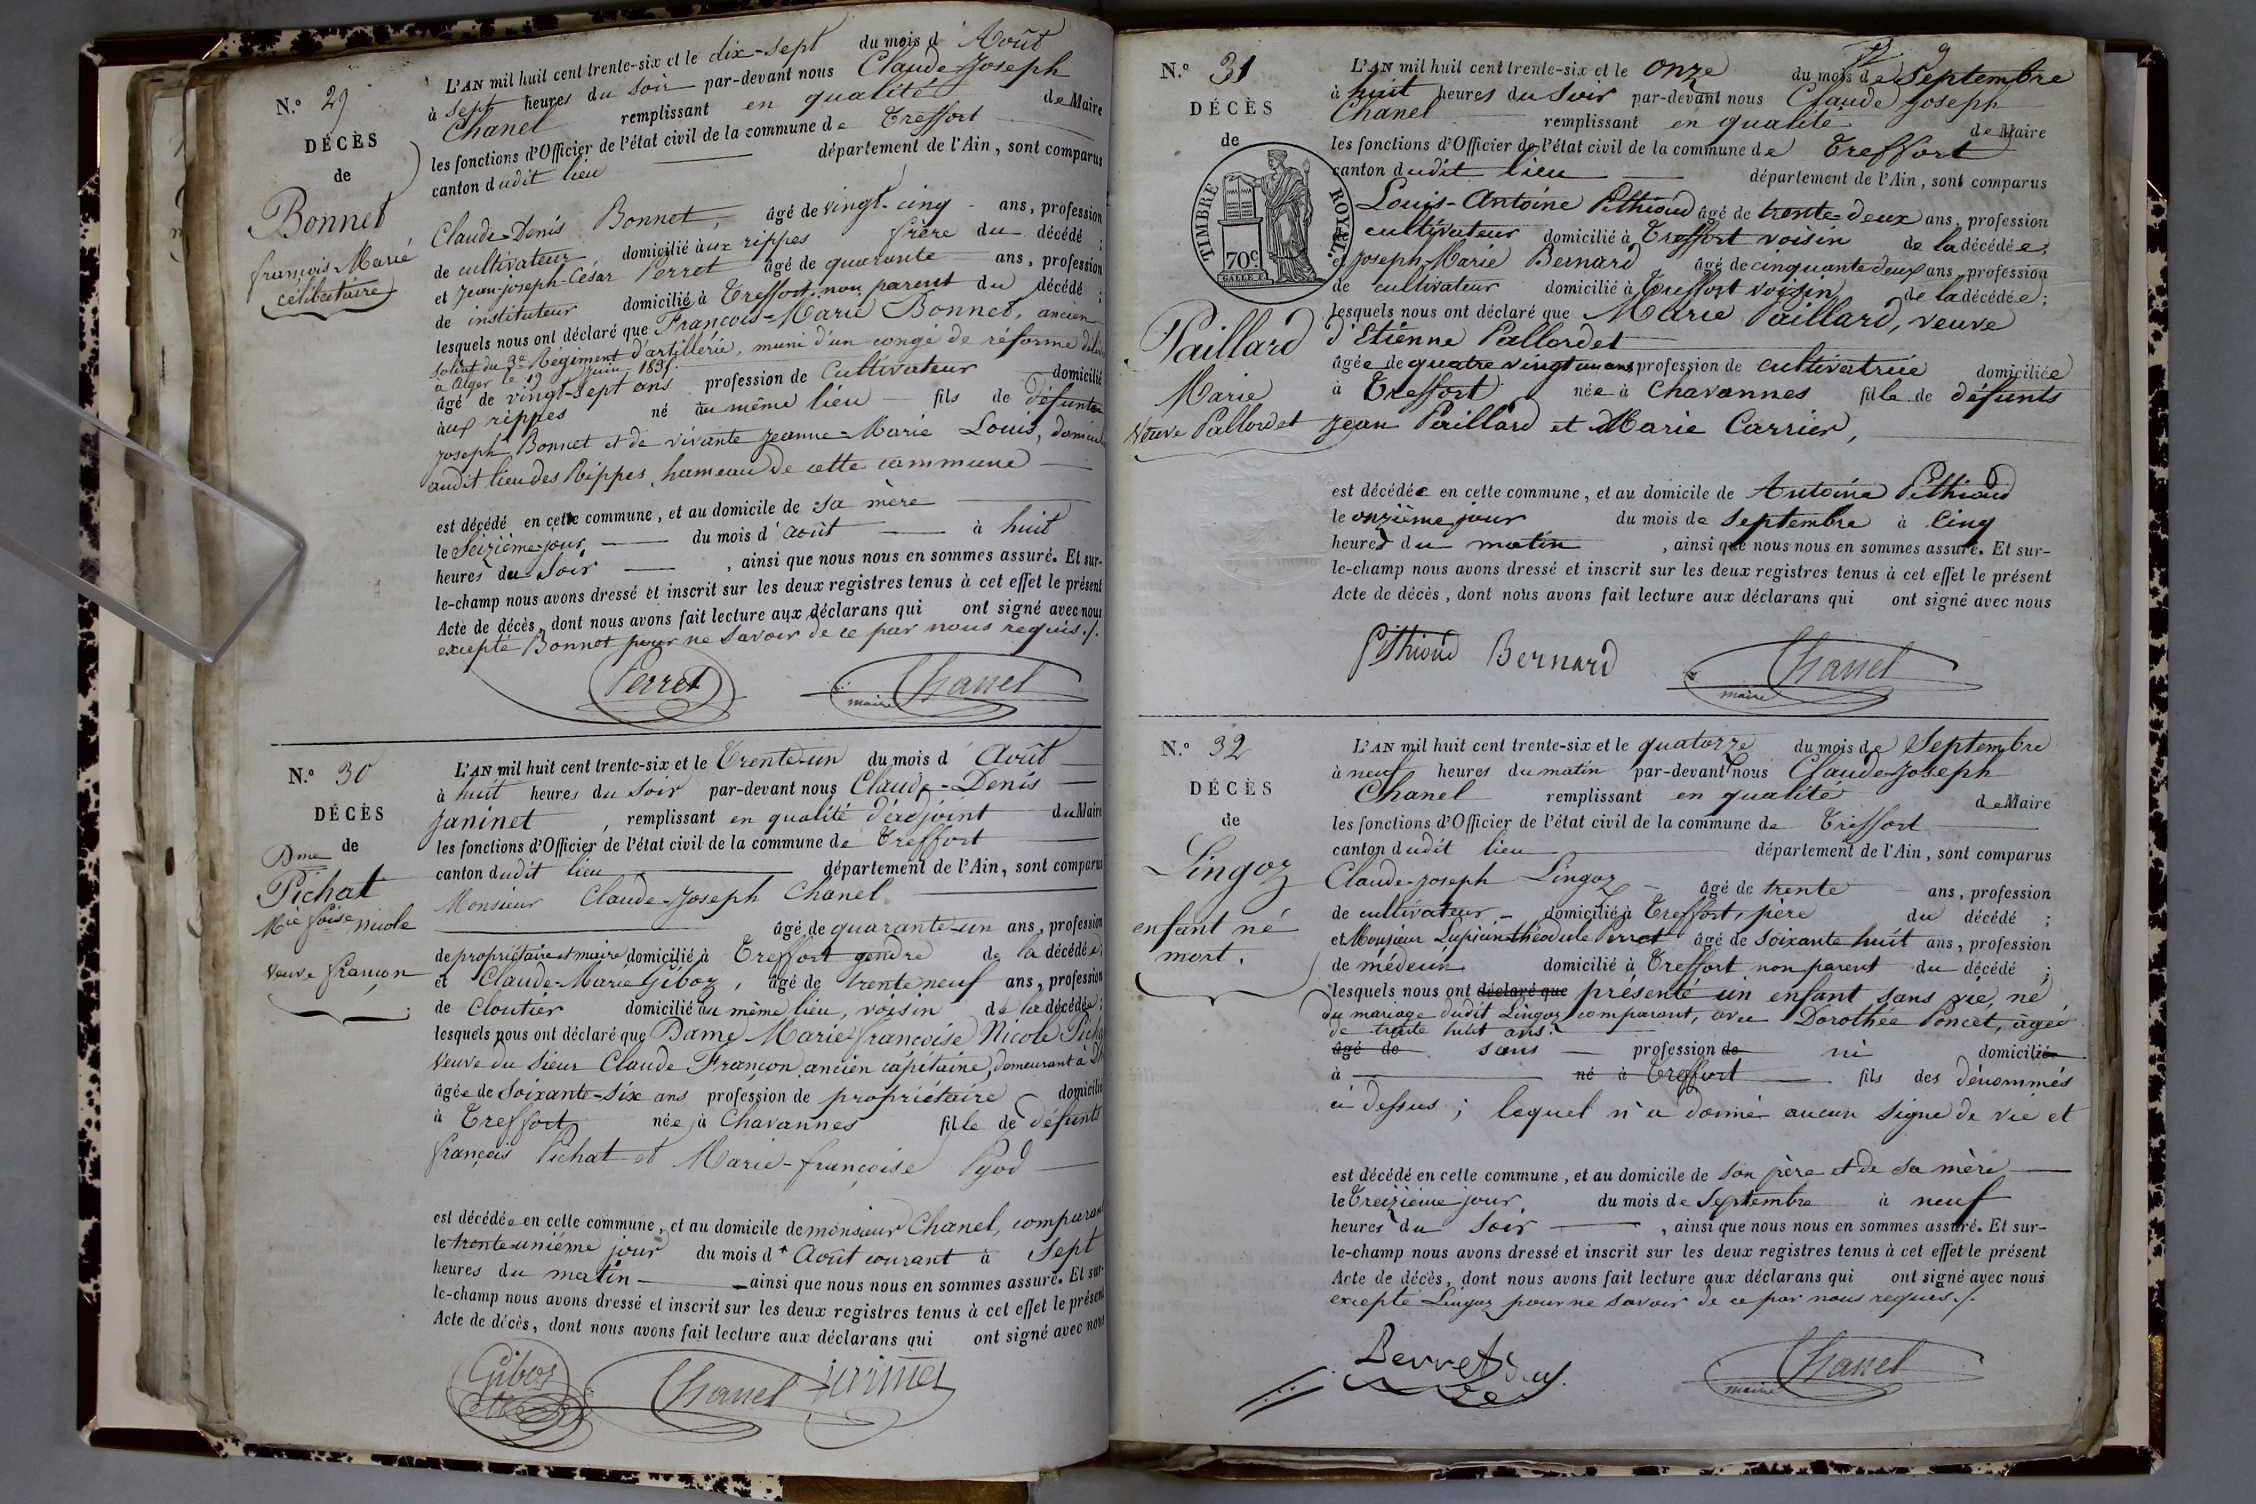 N.° 29
DÉCÈS
de
Bonnet
françois Marie
célibataire
L'AN mil huit cent trente-six et le dix-sept du mois d'Août
à sept heures du soir par-devant nous Claude-Joseph
Chanel remplissant en qualité de Maire
les fonctions d'Officier de l'état civil de la commune de Treffort
canton dudit lieu département de l'Ain, sont comparus
Claude-Denis Bonnet, âgé de vingt-cinq ans, profession
de cultivateur domicilié aux rippes frère du décédé ;
et Jean-Joseph-César Perret âgé de quarante ans, profession
de instituteur domicilié à Treffort, non parent du décédé ;
lesquels nous ont déclaré que François-Marie Bonnet, ancien
soldat du 3e Régiment d'artillerie, muni d'un congé de réforme
à Alger le 19 juin 183
âgé de vingt-sept ans profession de Cultivateur domicilié
aux rippes né au même lieu fils de défunt
Joseph Bonnet et de vivante Jeanne-Marie Louis,
audit lieu des Rippes, hameau de cette commune
est décédé en cette commune, et au domicile de sa mère
le Seizième jour du mois d'août à huit
heures du Soir , ainsi que nous nous en sommes assuré. Et sur-
le-champ nous avons dressé et inscrit sur les deux registres tenus à cet effet le présent
Acte de décès, dont nous avons fait lecture aux déclarans qui ont signé avec nous
excepté Bonnet pour ne savoir de ce par nous requis./.
Perret Chanel
maire
N.° 30
DÉCÈS
de
Dme
Pichat
Mie foise nicole
Veuve françon
L'AN mil huit cent trente-six et le Trente-un du mois d'Août
à huit heures du Soir par-devant nous Claude-Denis
Janinet, remplissant en qualité d'adjoint du Maire
les fonctions d'Officier de l'état civil de la commune de Treffort
canton dudit lieu département de l'Ain, sont comparus
Monsieur Claude-Joseph Chanel
âgé de quarante-un ans, profession
de propriétaire et maire domicilié à Treffort gendre de la décédée ;
et Claude-Marie Giboz, âgé de trente neuf ans, profession
de Cloutier domicilié au même lieu, voisin de la décédée ;
lesquels nous ont déclaré que Dame Marie-françoise Nicole
Veuve du Sieur Claude Françon ancien capitaine, demeurant à
âgée de Soixante-six ans profession de propriétaire domicilié
à Treffort née à Chavannes fille de défunts
françois Pichat et Marie-françoise Pyod
est décédée en cette commune, et au domicile de monsieur Chanel, comparant
le trente-unième jour du mois d'Août courant à Sept
heures du matin ainsi que nous nous en sommes assuré. Et sur-
le-champ nous avons dressé et inscrit sur les deux registres tenus à cet effet le présent
Acte de décès, dont nous avons fait lecture aux déclarans qui ont signé avec nous
Giboz Chanel Janinet
N.° 31
DÉCÈS
de
TIMBRE ROYAL.
70c
Paillard
Marie
Veuve Pallordet
L'AN mil huit cent trente-six et le onze du mois de Septembre
à huit heures du Soir par-devant nous Claude Joseph
Chanel remplissant en qualité de Maire
les fonctions d'Officier de l'état civil de la commune de Treffort
canton dudit lieu département de l'Ain, sont comparus
Louis-Antoine Pithioud âgé de trente-deux ans, profession
cultivateur domicilié à Treffort voisin de la décédée ;
et Joseph-Marie Bernard âgé de cinquante deux ans, profession
de cultivateur domicilié à Treffort voisin de la décédée ;
lesquels nous ont déclaré que Marie Paillard, veuve
d'Etienne Pallordet
âgée de quatre vingt un ans profession de cultivatrice domiciliée
à Treffort née à Chavannes fille de défunts
Jean Paillard et Marie Carrier,
est décédée en cette commune, et au domicile de Antoine Pithioud
le onzième jour du mois de Septembre à Cinq
heures du matin , ainsi que nous nous en sommes assuré. Et sur-
le-champ nous avons dressé et inscrit sur les deux registres tenus à cet effet le présent
Acte de décès, dont nous avons fait lecture aux déclarans qui ont signé avec nous
Pithioud Bernard Chanel
maire
N.° 32
DÉCÈS
de
Lingoz
enfant né
mort.
L'AN mil huit cent trente-six et le quatorze du mois de Septembre
à neuf heures du matin par-devant nous Claude-Joseph
Chanel remplissant en qualité de Maire
les fonctions d'Officier de l'état civil de la commune de Treffort
canton dudit lieu département de l'Ain, sont comparus
Claude-Joseph Lingoz âgé de trente ans, profession
de cultivateur domicilié à Treffort, père du décédé ;
et Monsieur Lupicin-théodule Perret âgé de soixante huit ans, profession
de médecin domicilié à Treffort non parent du décédé ;
lesquels nous ont déclaré que présenté un enfant sans vie, né
du mariage dudit Lingoz comparant, avec Dorothée Poncet, âgée
de trente huit ans.
âgé de sans profession de ni domicilié
à né à Treffort fils des dénommés
ci dessus ; lequel n'a donné aucun signe de vie et
est décédé en cette commune, et au domicile de son père et de sa mère
le Treizième jour du mois de Septembre à neuf
heures du Soir , ainsi que nous nous en sommes assuré. Et sur-
le-champ nous avons dressé et inscrit sur les deux registres tenus à cet effet le présent
Acte de décès, dont nous avons fait lecture aux déclarans qui ont signé avec nous
excepté Lingoz pour ne savoir de ce par nous requis./.
Perret Chanel
maire